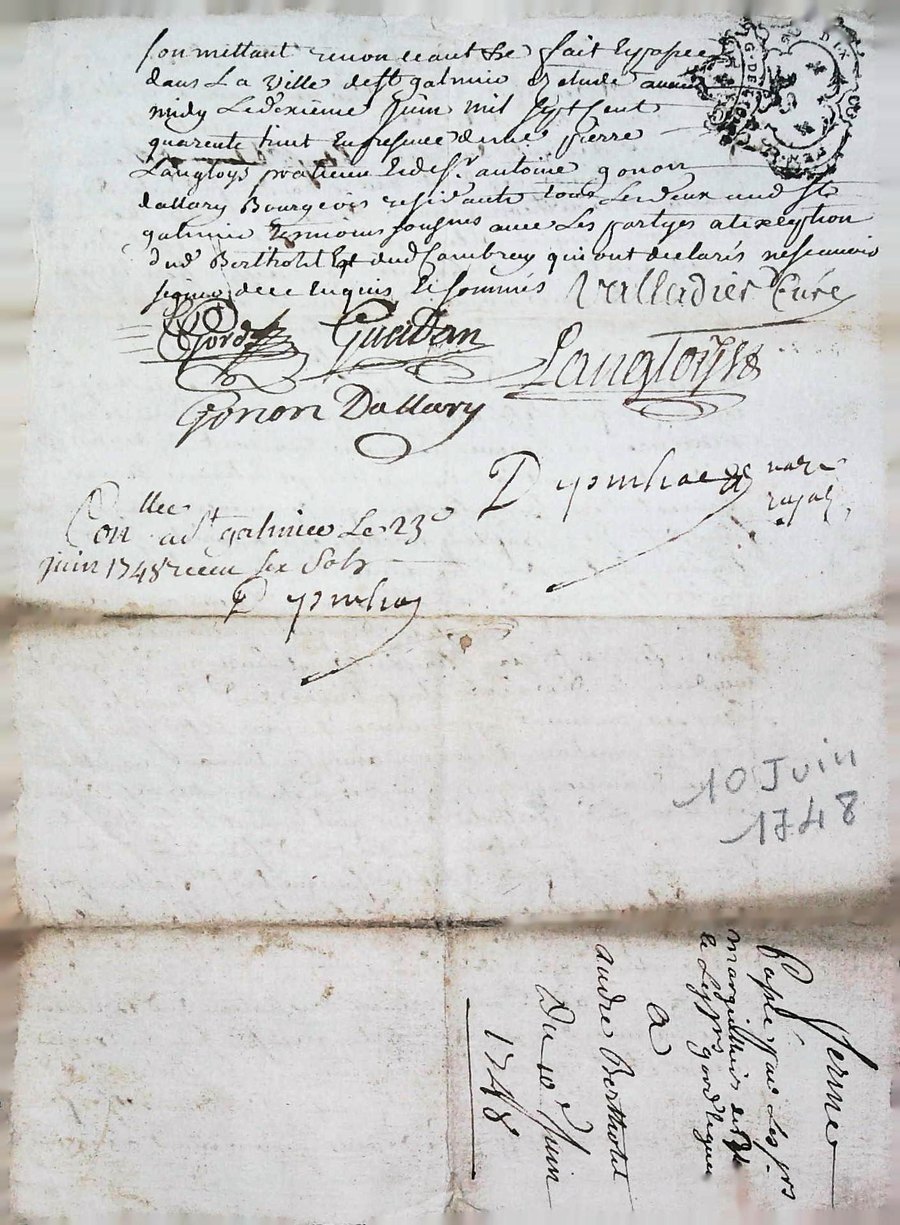 soumettant renonceant &c fait et passé
dans La Ville de St galmie et etude avant
midy Le dixieme Juin mil sept cent
quarente huit En presence de me. pierre
Langloys praticien Et de sr. antoine gonon
dallary Bourgeois residants tous Les deux aud St
galmie temoins soignes avec Les partyes a l'exeption
dud Bertholet Et dud Cambrey qui ont declarés ne scavoir
signer de ce Enquis Et sommés Valladier Curé
Gord
Langloys
Gonon Dallary
nore
royal
Conllee a St galmiee Le 23e
juin 1748 receu six Sols
10 Juin
1748
ferme
passé par Les srs
marguilliers de St
a
andre Bertholet
Du 10e Juin
1748